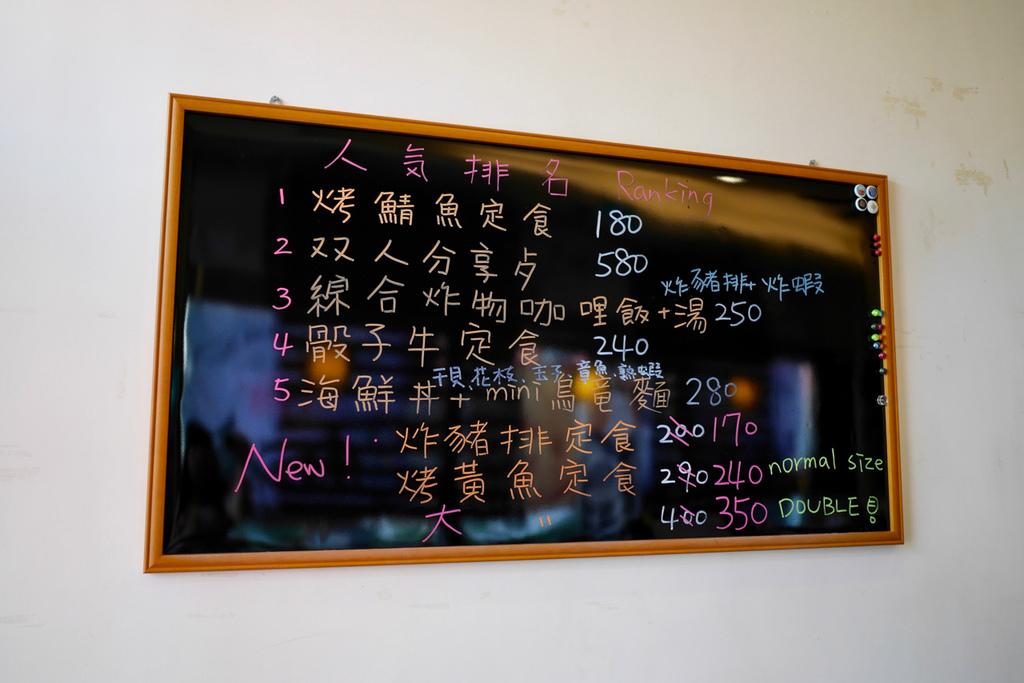 人気排名 Ranking
1 烤鯖魚定食 180
2 双人分享歺 580
炸豬排+炸蝦
3 綜合炸物咖哩飯+湯 250
4 骰子牛定食 240
干貝、花枝、玉子、章魚、熟蝦
5 海鮮丼+mini烏竜麵 280
New! 炸豬排定食 200 170
烤黃魚定食 290 240 normal size
大 〃 400 350 DOUBLE!